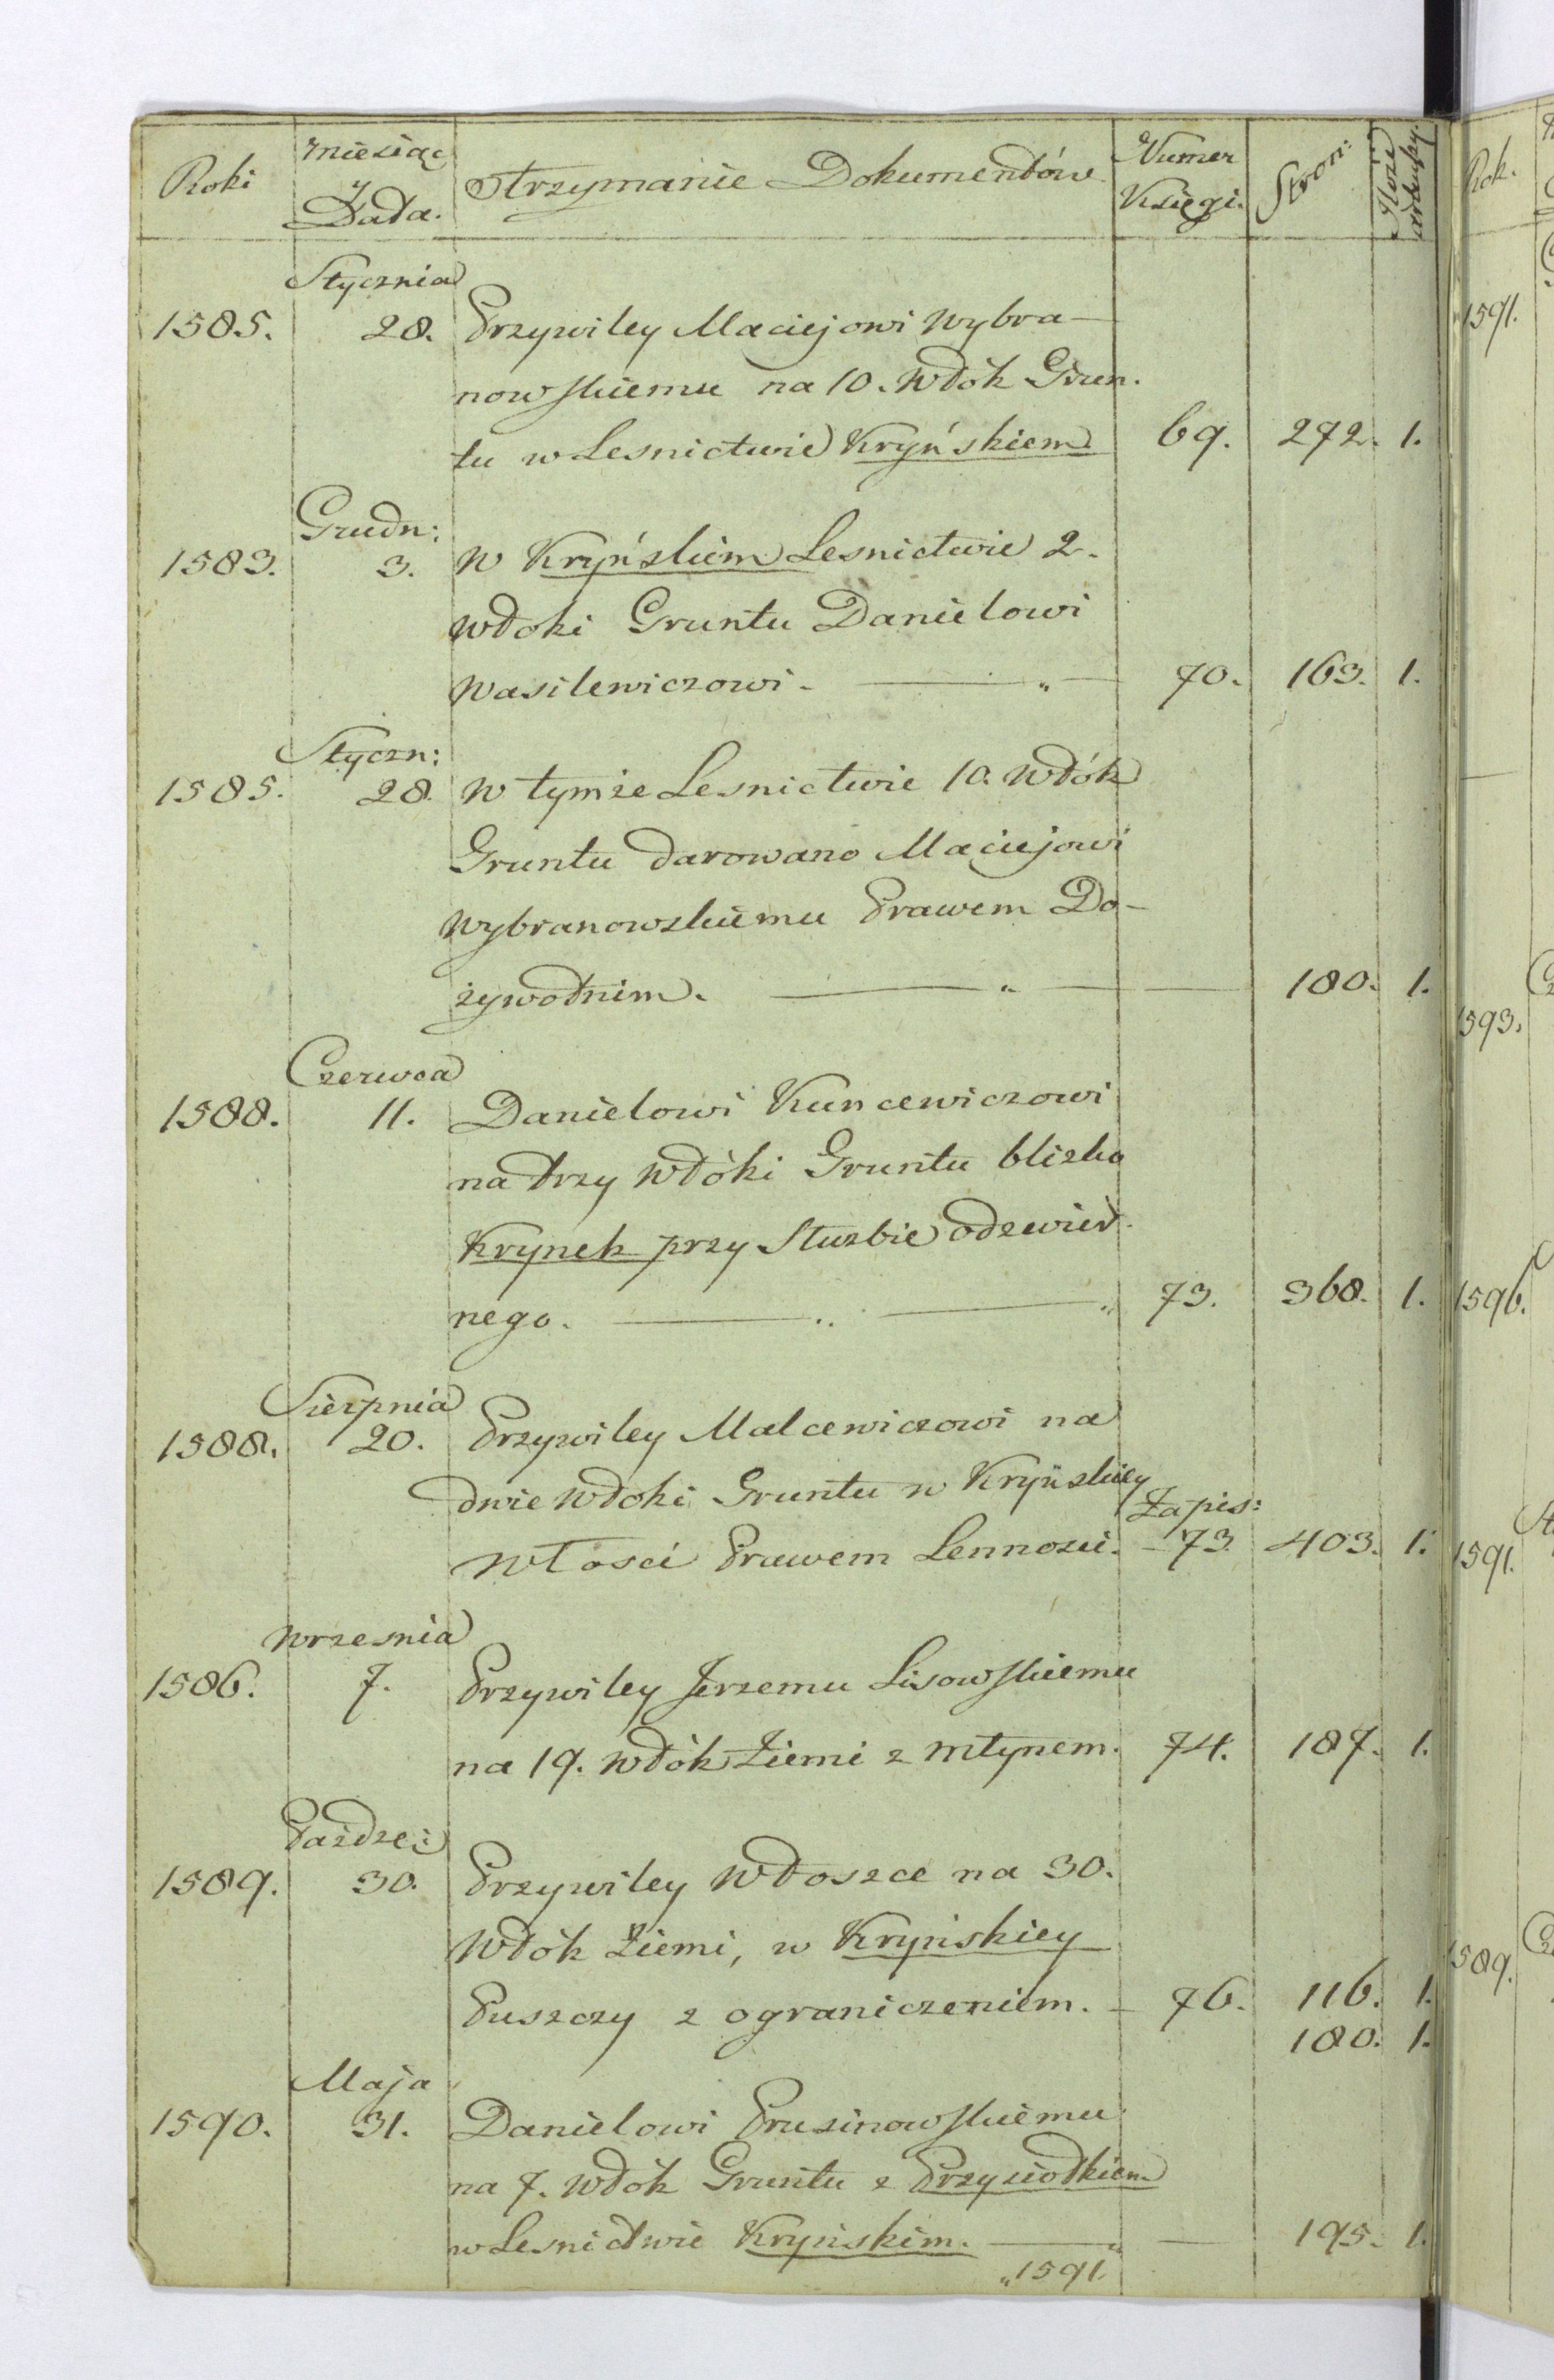 Roki
Miesiąc
y
Data.
Otrzymanie Dokumentów
Numer
Księgi.
Stron:
Ilość
arkuszy.
Stycznia
1585. 28. Przywiley Maciejowi Wybra-
nowskiemu na 10. Włók Grun.
tu w Lesnictwie Kryńskiem 69. 272. 1.
Grudn:
1583. 3. W Kryńskiem Lesnictwie 2.
włoki Gruntu Danielowi
Wasilewiczowi. — „ — 70. 163. 1.
Styczn:
1585. 28. W tymże Lesnictwie 10. Włók
Gruntu darowano Maciejowi
Wybranowskiemu Prawem Do-
żywotnim. — „ — — 180. 1.
Czerwca
1588. 11. Danielowi Kuncewiczowi
na trzy Włóki Gruntu blizko
Krynek przy Służbie odzwier.
nego. — „ — „ 73. 368. 1.
Sierpnia
1588. 20. Przywiley Malcewiczowi na
dwie Włoki Gruntu w Kryńskiey
Zapis:
Włosci Prawem Lennozci. - 73. 403. 1.
Wrzesnia
1586. 7. Przywiley Jerzemu Lisowskiemu
na 19. Włók Ziemi z młynem. 74. 187. 1.
Paźdze:
1589. 30. Przywiley Włoszce na 30.
Włók Ziemi, w Kryńskiey
Puszczy z ograniczeniem. - 76. 116. 1.
180. 1.
Maja
1590. 31. Danielowi Prusinowskiemu
na 7. Włók Gruntu z Przysiołkiem
w Lesnictwie Kryńskim. — „ — 195. 1.
„1591.
Rok.
1591.
1593.
1596.
1591.
1589.